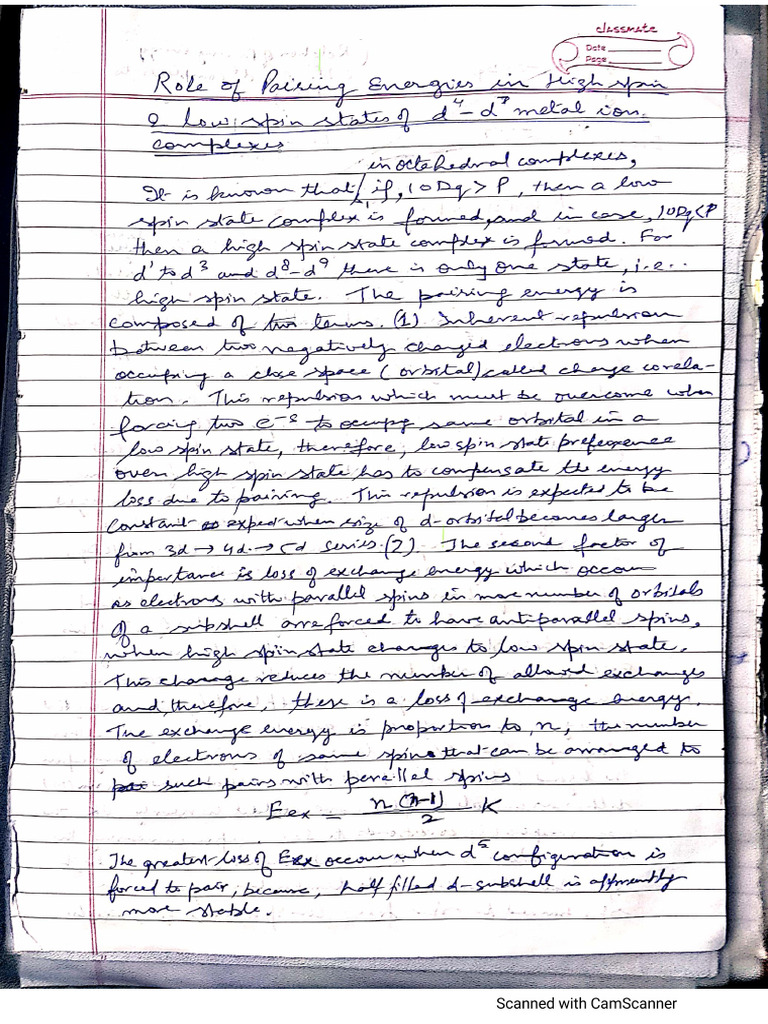 classmate
Date
Page
Role of Pairing Energies in High spin
& low spin states of d⁴-d⁷ metal ion
complexes
in octahedral complexes,
It is known that, if, 10Dq > P, then a low
spin state complex is formed, and in case, 10Dq<P
then a high spin state complex is formed. For
d¹ to d³ and d⁸-d⁹ there is only one state, i.e..
high spin state. The pairing energy is
composed of two terms. (1) Inherent repulsion
between two negatively charged electrons when
occupying a close space (orbital) called charge corela-
tion. This repulsion which must be overcome when
forcing two e⁻s to occupy same orbital in a
low spin state, therefore, low spin state preference
over high spin state has to compensate the energy
loss due to pairing. This repulsion is expected to be
constant expect when size of d-orbital becomes larger
from 3d → 4d → 5d series. (2) The second factor of
importance is loss of exchange energy which occurs
as electrons with parallel spins in more number of orbitals
of a subshell are forced to have antiparallel spins,
when high spin state changes to low spin state.
This change reduces the number of allowed exchanges
and, therefore, there is a loss of exchange energy.
The exchange energy is proportion to, n, the number
of electrons of same spins that can be arranged to
such pairs with perellel spins
Eex = n(n-1)/2 K
The greatest loss of Eex occurs when d⁵ configuration is
forced to pair, because, half filled d-subshell is apparently
more stable.
Scanned with CamScanner